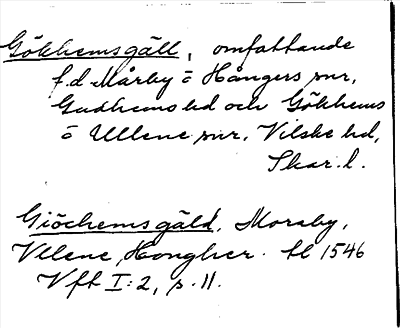 Gökhems gäll, omfattande
f.d Mårby o Hångers snr,
Gudhems hd och Gökhems
o Ullene snr, Vilske hd,
Skar. l.
Giöchems gäld, Moraby,
Vllene, Hongher. tl 1546
Vft I:2, s. 11.